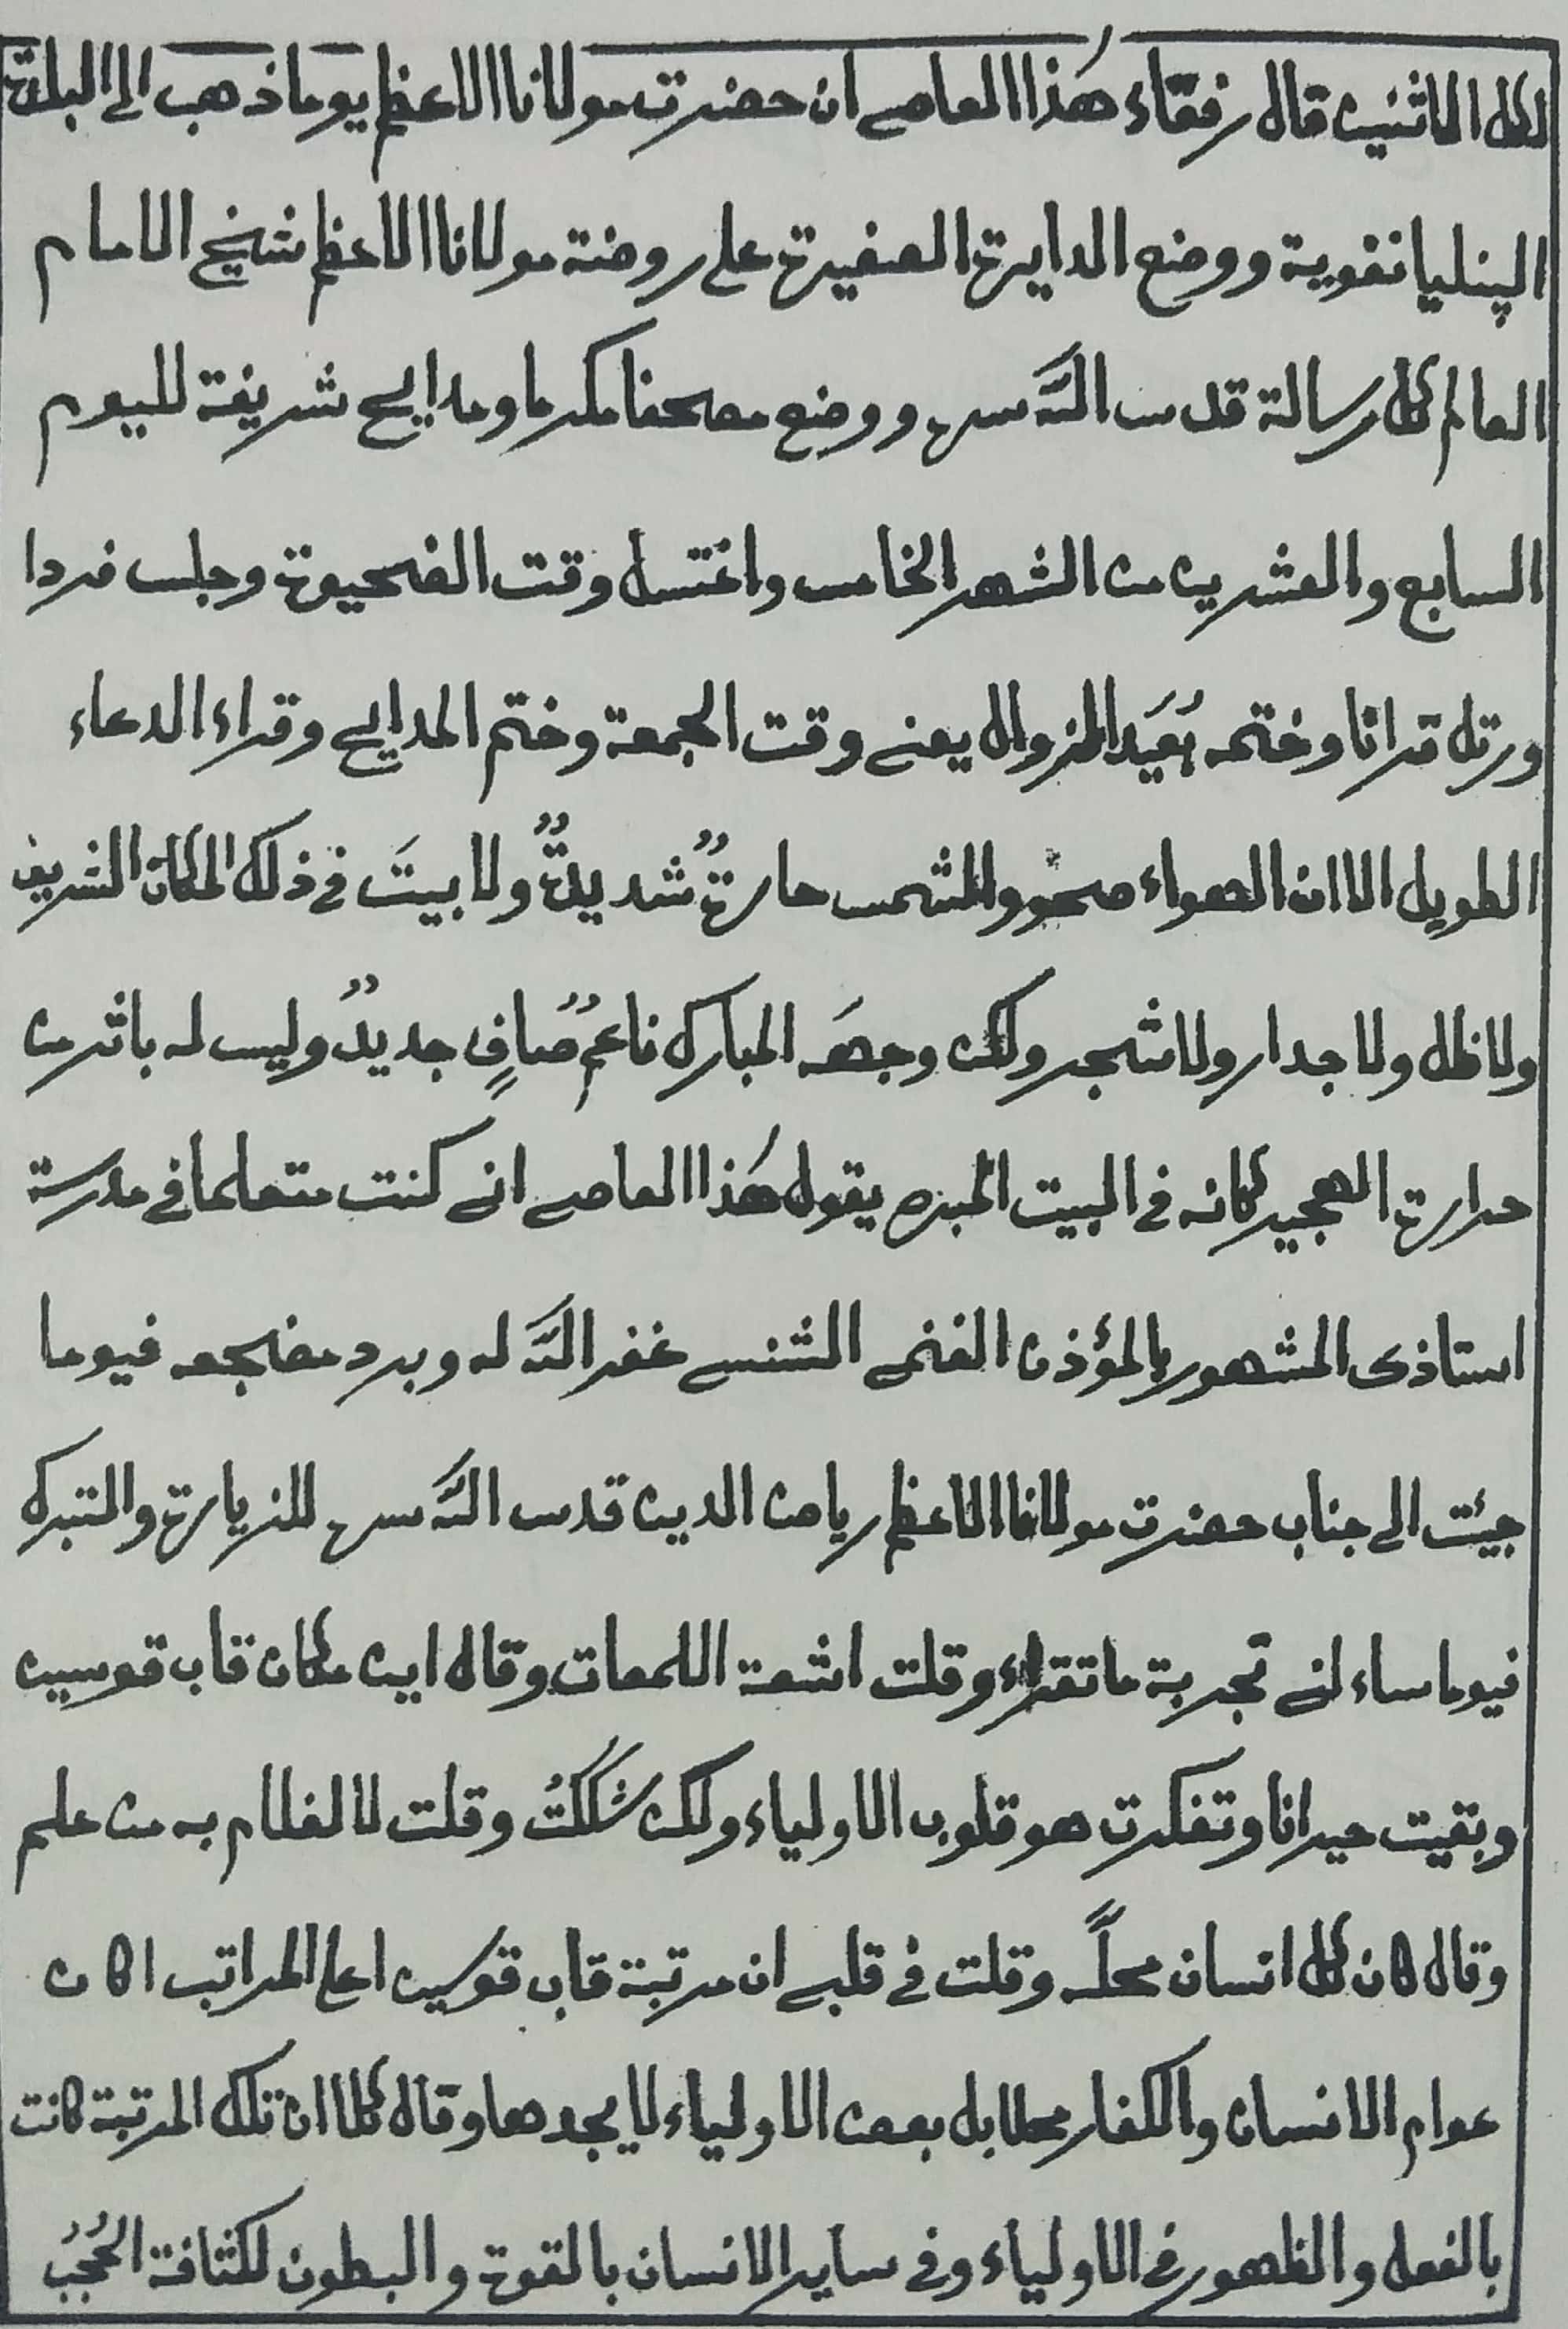 لكل الاثنين قال رفقاء هٰذا العاصے ان حضرت مولانا الاعظم يوما ذهب الى البلدة
الپنليانغوية ووضع الدايرة الصغيرة على روضة مولانا الاعظم شيخ الامام
العالم كل رسالة قدس اللّٰه سره ووضع مصحفا مكرما ومدايح شريفة لليوم
السابع والعشرين من الشهر الخامس واغتسل وقت الضحيوة وجلس فردا
ورتل قرانا وختمه بُعَيد الزوال يعنے وقت الجمعة وختم المدايح وقراء الدعاء
الطويل الا ان الهواء صحو والشمس حارةٌ شديدةٌ ولا بيتَ فى ذلك المكان الشريف
ولا ظل ولا جدار ولا شجر ولكن وجهَه المبارك ناعمٌ صافٍ جديدٌ وليس له باثر من
حرارة الهجير كانه فى البيت المبرد يقول هٰذا العاصے انے كنت متعلما فى مدرسة
استاذى المشهور بالمؤذن الفنمى الشنسے غفر اللّٰه له وبرد مضجعه فيوما
جيئت الى جناب حضرت مولانا الاعظم رياض الدين قدس اللّٰه سره للزيارة والتبرك
فيوما ساء لنے تجربة ما تقراء وقلت اشعة اللمعات وقال اين مكان قاب قوسين
وبقيت حيرانا وتفكرت هو قلوب الاولياء ولكن شككتُ وقلت لا لغلام به من علم
وقال كان كل انسان محلًّه وقلت فى قلبے ان مرتبة قاب قوسين اعلى المراتب اكان
عوام الانسان والكفار محلا بل بعض الاولياء لا يجدها وقال كلا ان تلك المرتبة كانت
بالفعل والظهور فى الاولياء وفى ساير الانسان بالقوة والبطون لكثافة الحُجُبُ